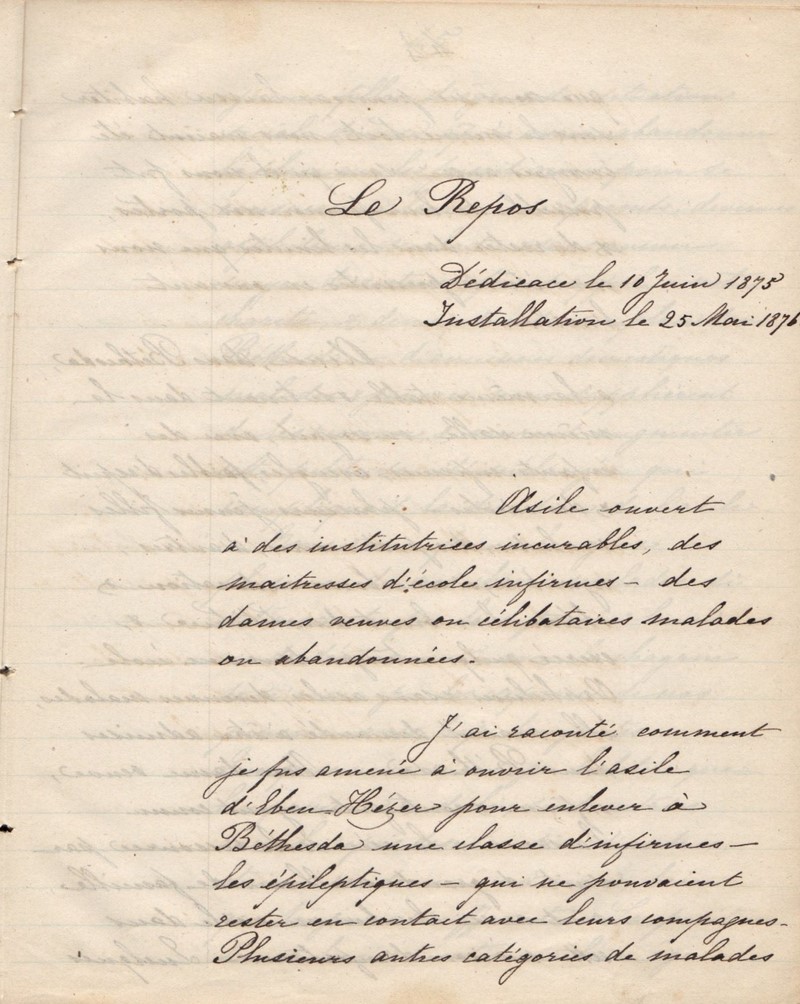 Le Repos
Dédicace le 10 Juin 1875
Installation le 25 Mai 1876
Asile ouvert
à des institutrices incurables, des
maitresses d'école infirmes – des
dames veuves ou célibataires malades
ou abandonnées.
J'ai raconté comment
je fus amené à ouvrir l'asile
d'Eben-Hézer pour enlever à
Béthesda une classe d'infirmes –
les épileptiques – qui ne pouvaient
rester en contact avec leurs compagnes.
Plusieurs autres catégories de malades